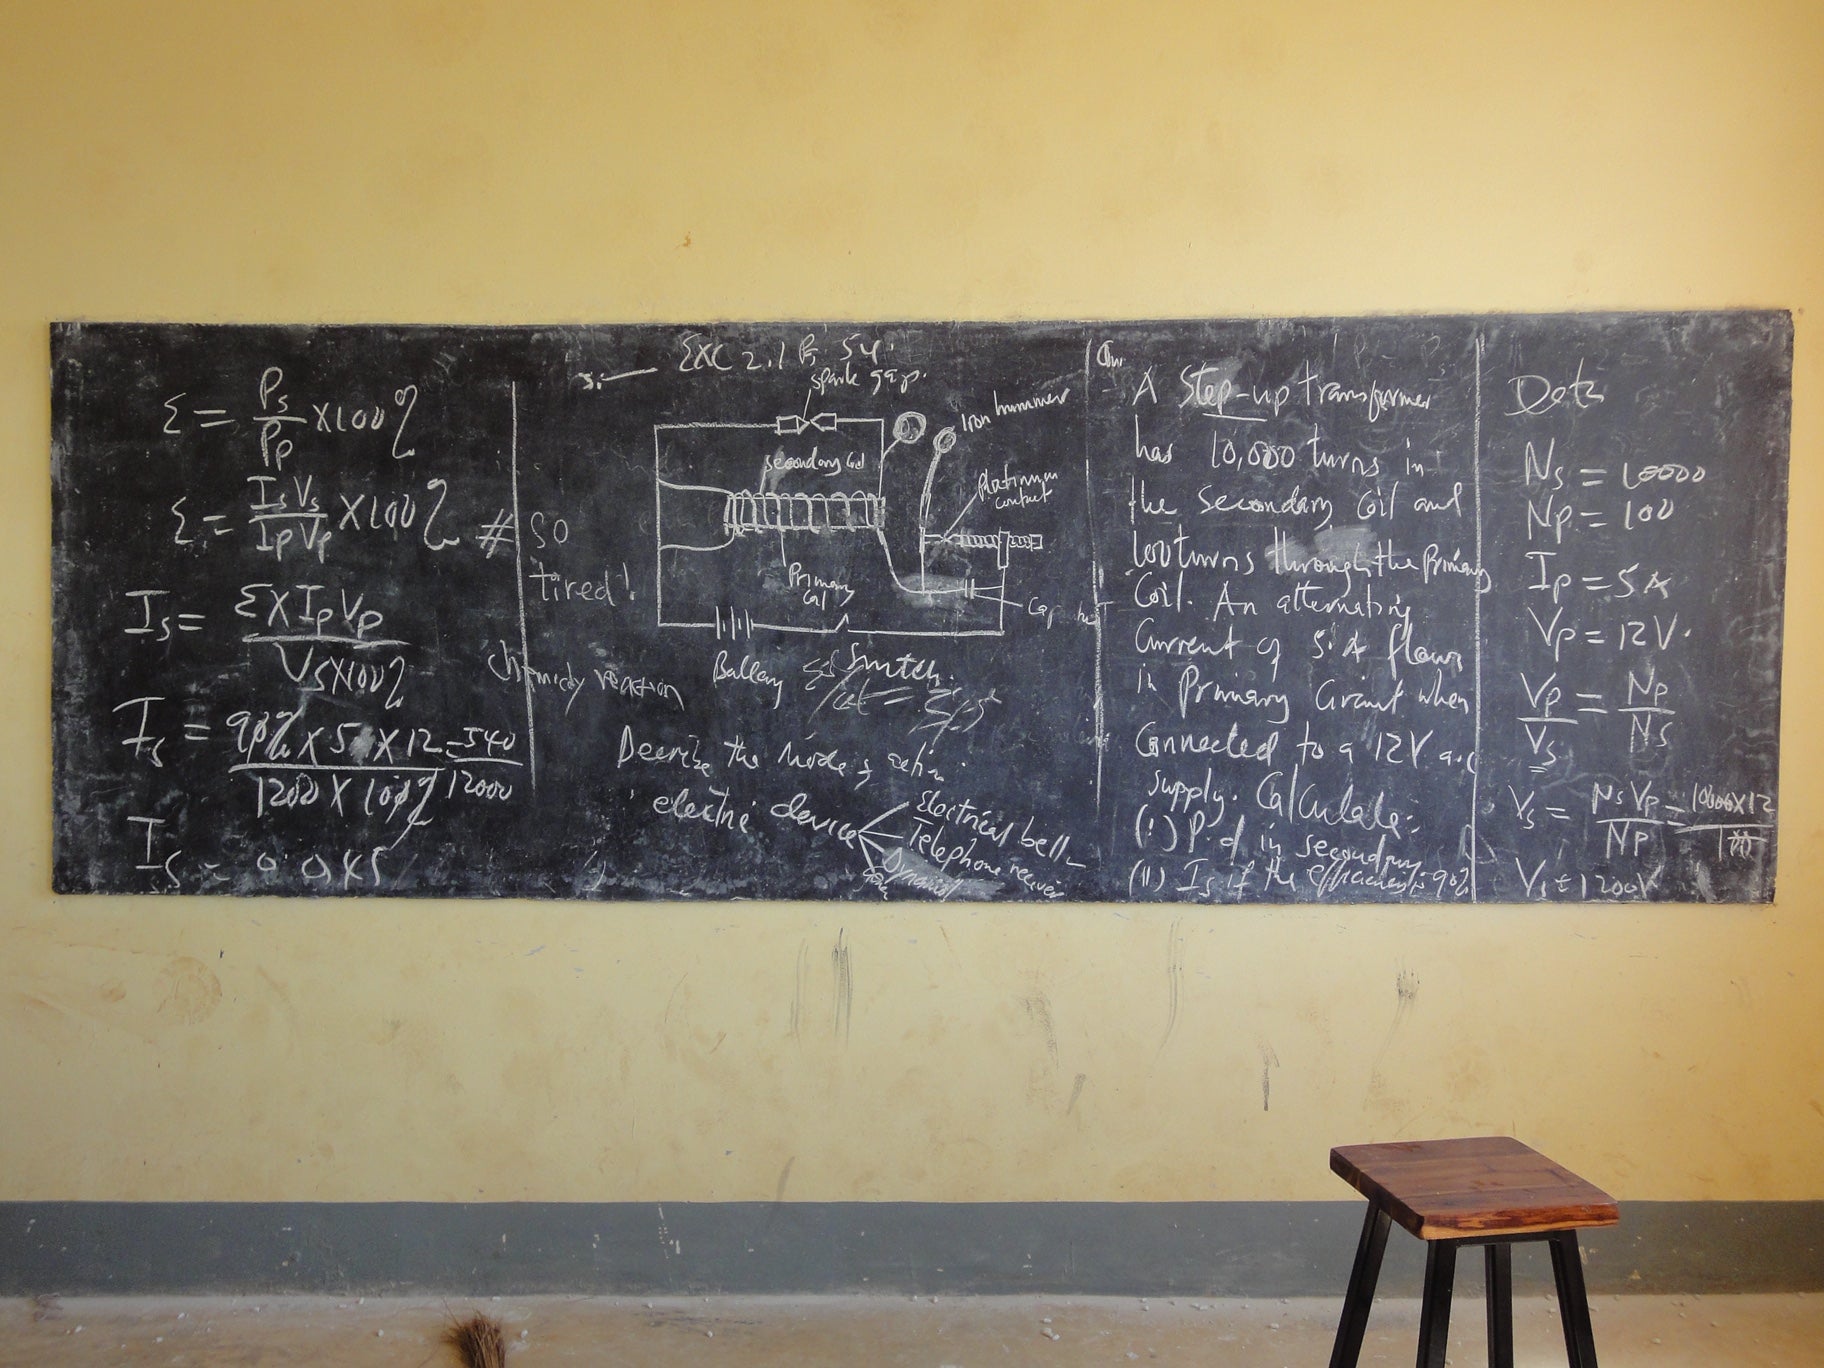 Ɛ = Ps/Pp X100%
Ɛ = IsVs/IpVp X100%
Is = ƐXIpVp/VsX100%
Is = 90% X 5 X 12/1200 X 100% = 540/12000
Is = 0.045
#
So
tired!
EXC 2.1 Pg 54.
spark gap.
Iron hammer
secondary Coil
Platinum
contact
Primary
Coil
Cap
Battery
Switch.
reaction
the Mode of action
electric device
Electrical bell
Telephone receiver
Qn
A Step-up transformer
has 10,000 turns in
the secondary Coil and
100 turns through the Primary
Coil. An alternating
Current of 5.A flows
in Primary Circuit when
Connected to a 12V a.c
supply. Calculate:
(i) P.d in secondary
(ii) Is if the efficiency is 90%
Data
Ns = 10000
Np = 100
Ip = 5A
Vp = 12V.
Vp/Vs = Np/Ns
Vs = NsVp/Np = 10000X12/100
Vs = 1200V